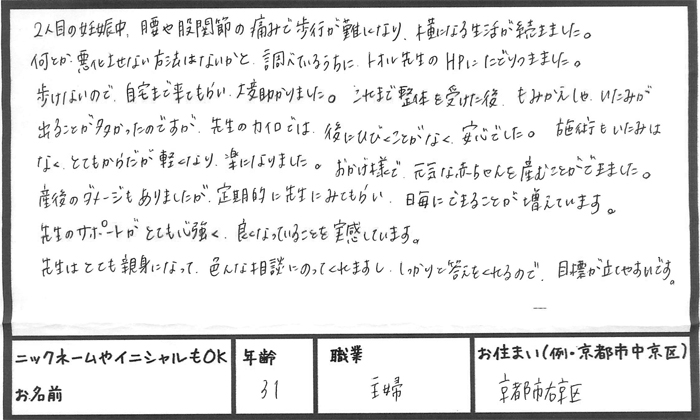 2人目の妊娠中、腰や股関節の痛みで歩行が難になり、横になる生活が続きました。
何とか悪化させない方法はないかと、調べているうちに、トオル先生のHPにたどりつきました。
歩けないので、自宅まで来てもらい、大変助かりました。これまで整体を受けた後、もみかえしや、いたみが
出ることが多かったのですが、先生のカイロでは、後にひびくことがなく、安心でした。施術もいたみは
なく、とてもからだが軽くなり、楽になりました。おかげ様で、元気な赤ちゃんを産むことができました。
産後のダメージもありましたが、定期的に先生にみてもらい、日毎にできることが増えています。
先生のサポートがとても心強く、良くなっていることを実感しています。
先生はとても親身になって、色んな相談にのってくれますし、しっかりと答えをくれるので、目標が立てやすいです。
ニックネームやイニシャルもOK 年齢 職業 お住まい(例・京都市中京区)
お名前 31 主婦 京都市右京区